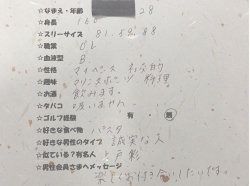 ☆なまえ・年齢 28
☆身長 160
☆スリーサイズ 81.58.88
☆職業 OL
☆血液型 B
☆性格 マイペース 社交的
☆趣味 料理
☆お酒 飲みます。
☆タバコ 吸いません
☆ゴルフ経験 有 無
☆好きな食べ物 パスタ
☆好きな男性のタイプ 誠実な人
☆似ている?有名人 上戸彩
☆男性会員さまへメッセージ
楽しくお付き合いしたいです。